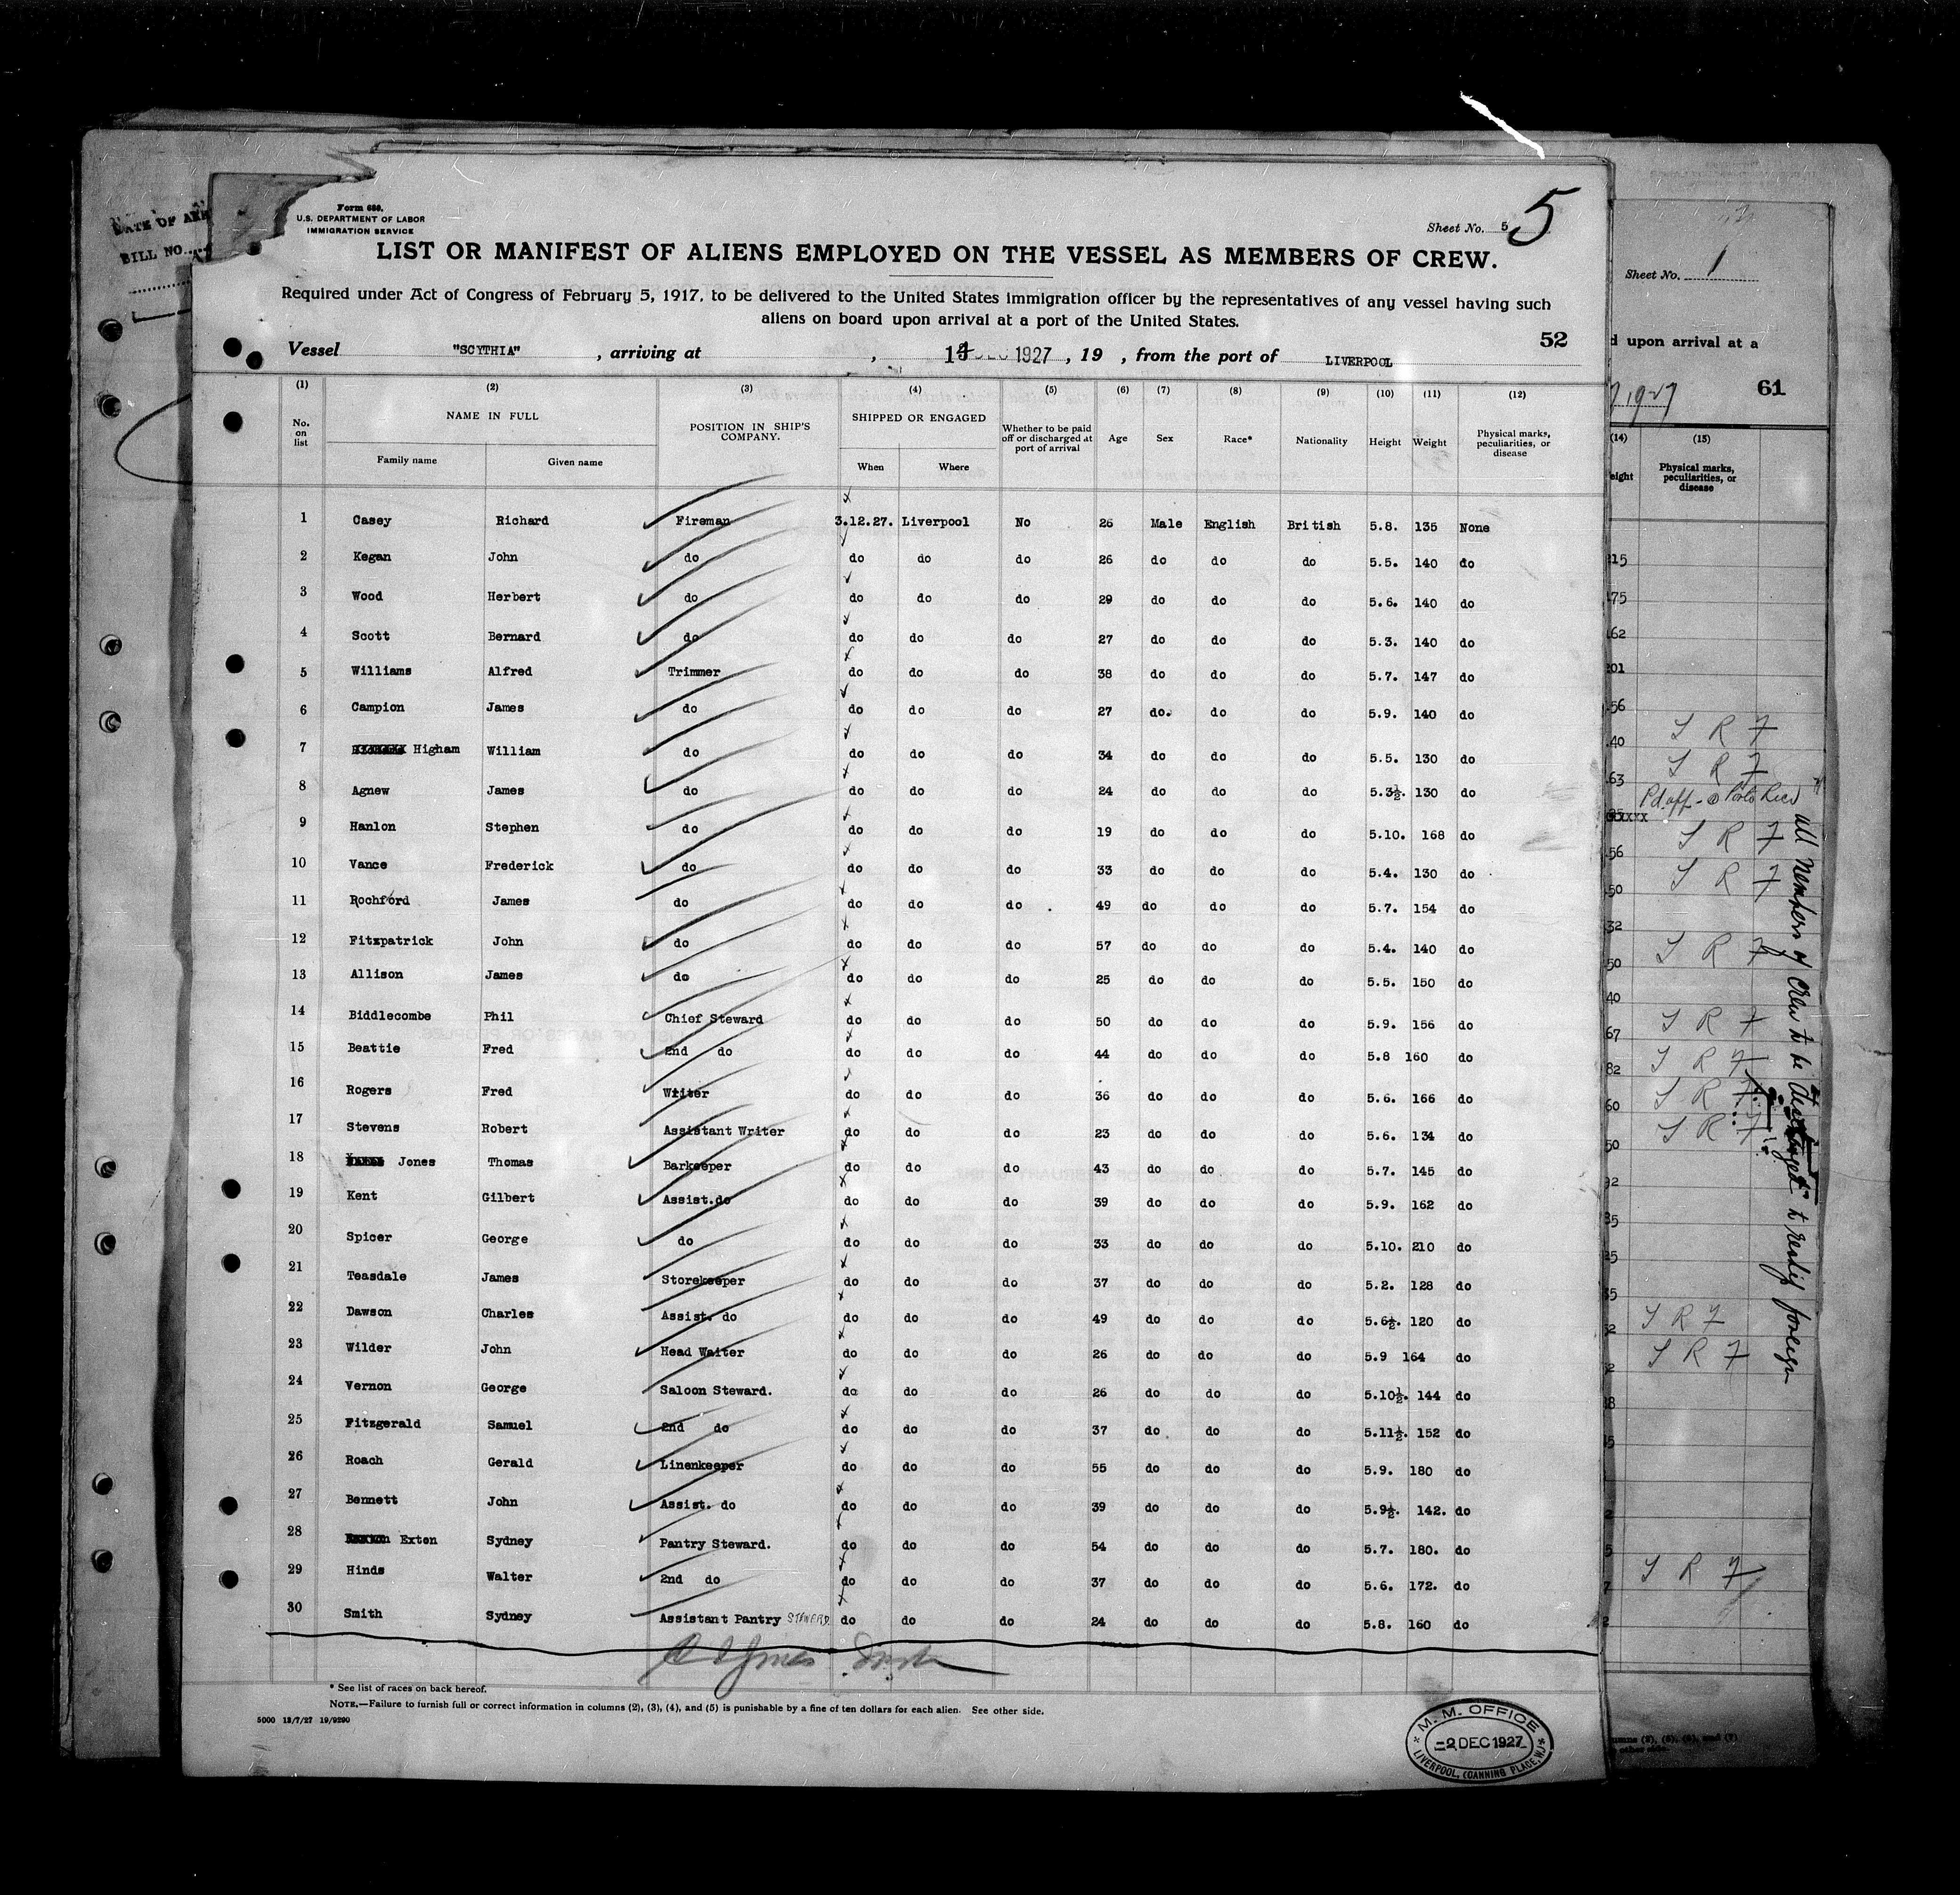 DATE OF ARR
BILL NO.....
Form 689.
U.S. DEPARTMENT OF LABOR
IMMIGRATION SERVICE
Sheet No. 5 5
LIST OR MANIFEST OF ALIENS EMPLOYED ON THE VESSEL AS MEMBERS OF CREW.
Required under Act of Congress of February 5, 1917, to be delivered to the United States immigration officer by the representatives of any vessel having such
aliens on board upon arrival at a port of the United States.
52
Vessel "SCYTHIA" , arriving at , DEC 1927 , 19 , from the port of LIVERPOOL
(1) (2) (3) (4) (5) (6) (7) (8) (9) (10) (11) (12)
No. on list NAME IN FULL POSITION IN SHIP'S COMPANY. SHIPPED OR ENGAGED Whether to be paid off or discharged at port of arrival Age Sex Race* Nationality Height Weight Physical marks, peculiarities, or disease
Family name Given name When Where
1 Casey Richard Fireman 3.12.27. Liverpool No 26 Male English British 5.8. 135 None
2 Kegan John do do do do 26 do do do 5.5. 140 do
3 Wood Herbert do do do do 29 do do do 5.6. 140 do
4 Scott Bernard do do do do 27 do do do 5.3. 140 do
5 Williams Alfred Trimmer do do do 38 do do do 5.7. 147 do
6 Campion James do do do do 27 do. do do 5.9. 140 do
7 Higham William do do do do 34 do do do 5.5. 130 do
8 Agnew James do do do do 24 do do do 5.3½. 130 do
9 Hanlon Stephen do do do do 19 do do do 5.10. 168 do
10 Vance Frederick do do do do 33 do do do 5.4. 130 do
11 Rochford James do do do do 49 do do do 5.7. 154 do
12 Fitzpatrick John do do do do 57 do do do 5.4. 140 do
13 Allison James do do do do 25 do do do 5.5. 150 do
14 Biddlecombe Phil Chief Steward do do do 50 do do do 5.9. 156 do
15 Beattie Fred 2nd do do do do 44 do do do 5.8 160 do
16 Rogers Fred Writer do do do 36 do do do 5.6. 166 do
17 Stevens Robert Assistant Writer do do do 23 do do do 5.6. 134 do
18 Jones Thomas Barkeeper do do do 43 do do do 5.7. 145 do
19 Kent Gilbert Assist.do do do do 39 do do do 5.9. 162 do
20 Spicer George do do do do 33 do do do 5.10. 210 do
21 Teasdale James Storekeeper do do do 37 do do do 5.2. 128 do
22 Dawson Charles Assist. do do do do 49 do do do 5.6½. 120 do
23 Wilder John Head Waiter do do do 26 do do do 5.9 164 do
24 Vernon George Saloon Steward. do do do 26 do do do 5.10½. 144 do
25 Fitzgerald Samuel 2nd do do do do 37 do do do 5.11½. 152 do
26 Roach Gerald Linenkeeper do do do 55 do do do 5.9. 180 do
27 Bennett John Assist. do do do do 39 do do do 5.9½. 142. do
28 Exton Sydney Pantry Steward. do do do 54 do do do 5.7. 180. do
29 Hinds Walter 2nd do do do do 37 do do do 5.6. 172. do
30 Smith Sydney Assistant Pantry STEWARD do do do 24 do do do 5.8. 160 do
* See list of races on back hereof.
NOTE.—Failure to furnish full or correct information in columns (2), (3), (4), and (5) is punishable by a fine of ten dollars for each alien. See other side.
5000 13/7/27 19/9290
M. M. OFFICE
2 DEC 1927
LIVERPOOL, CANNING PLACE,
Sheet No. 1
d upon arrival at a
1927 61
(14) (15)
eight Physical marks, peculiarities, or disease
Pd off - @ Porto Rico
all members of crew to be to reship foreign
umns (2), (3), (6), and (7)
other side.